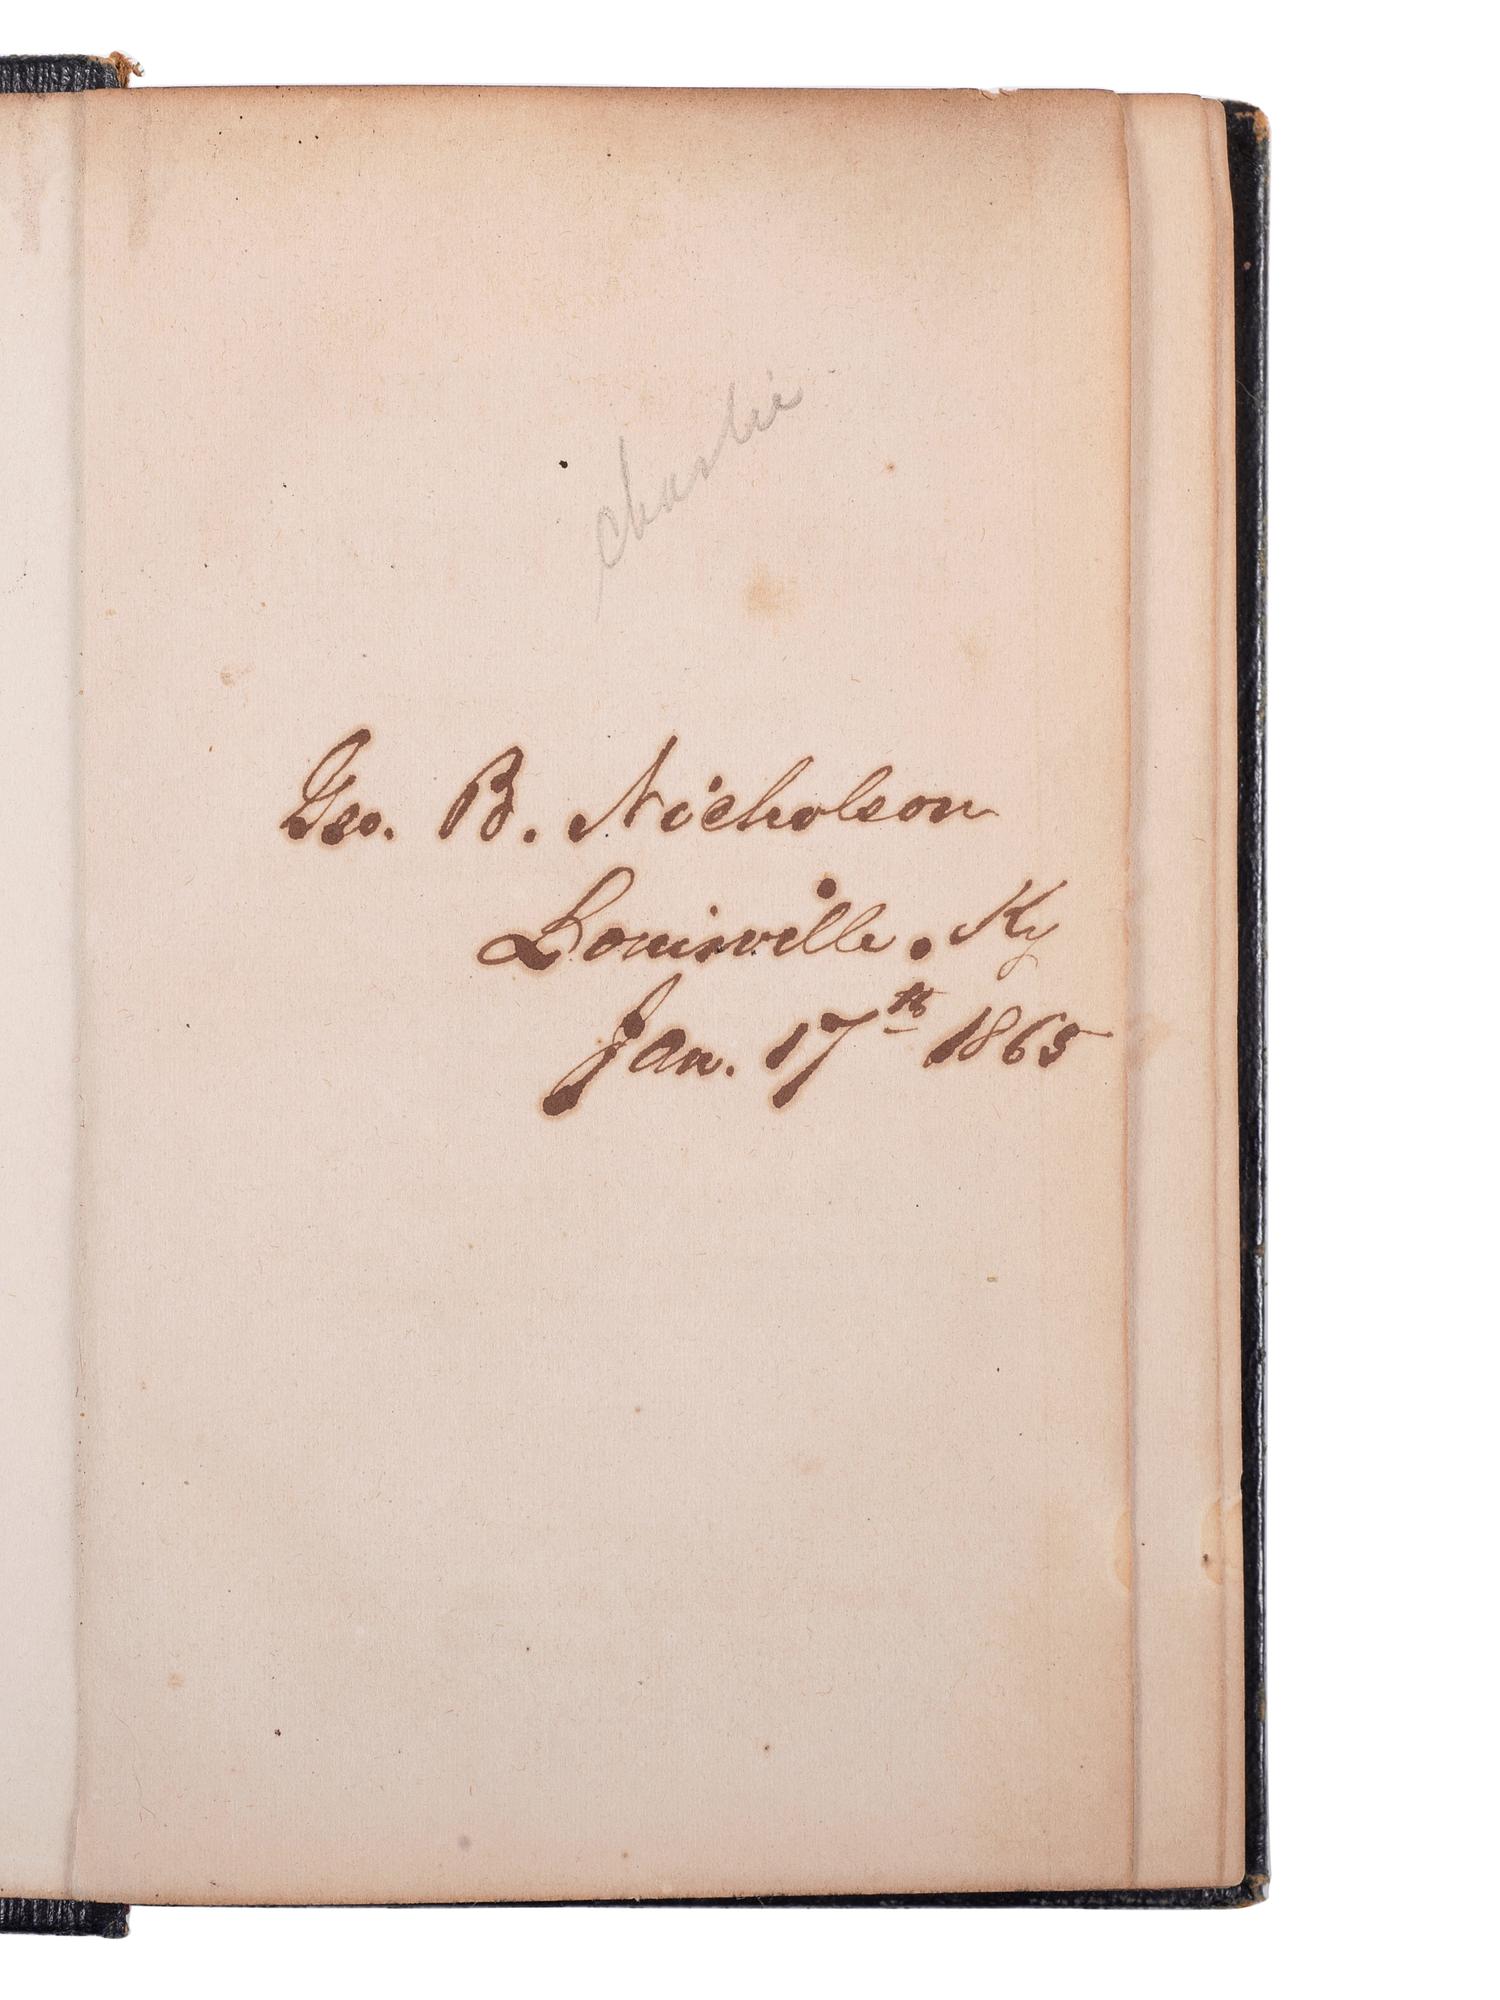 Charlie
Geo. B. Nicholson
Louisville. Ky
Jan. 17th 1865